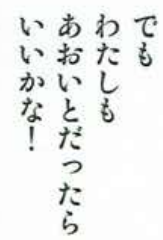 でも
わたしも
あおいとだったら
いいかな！